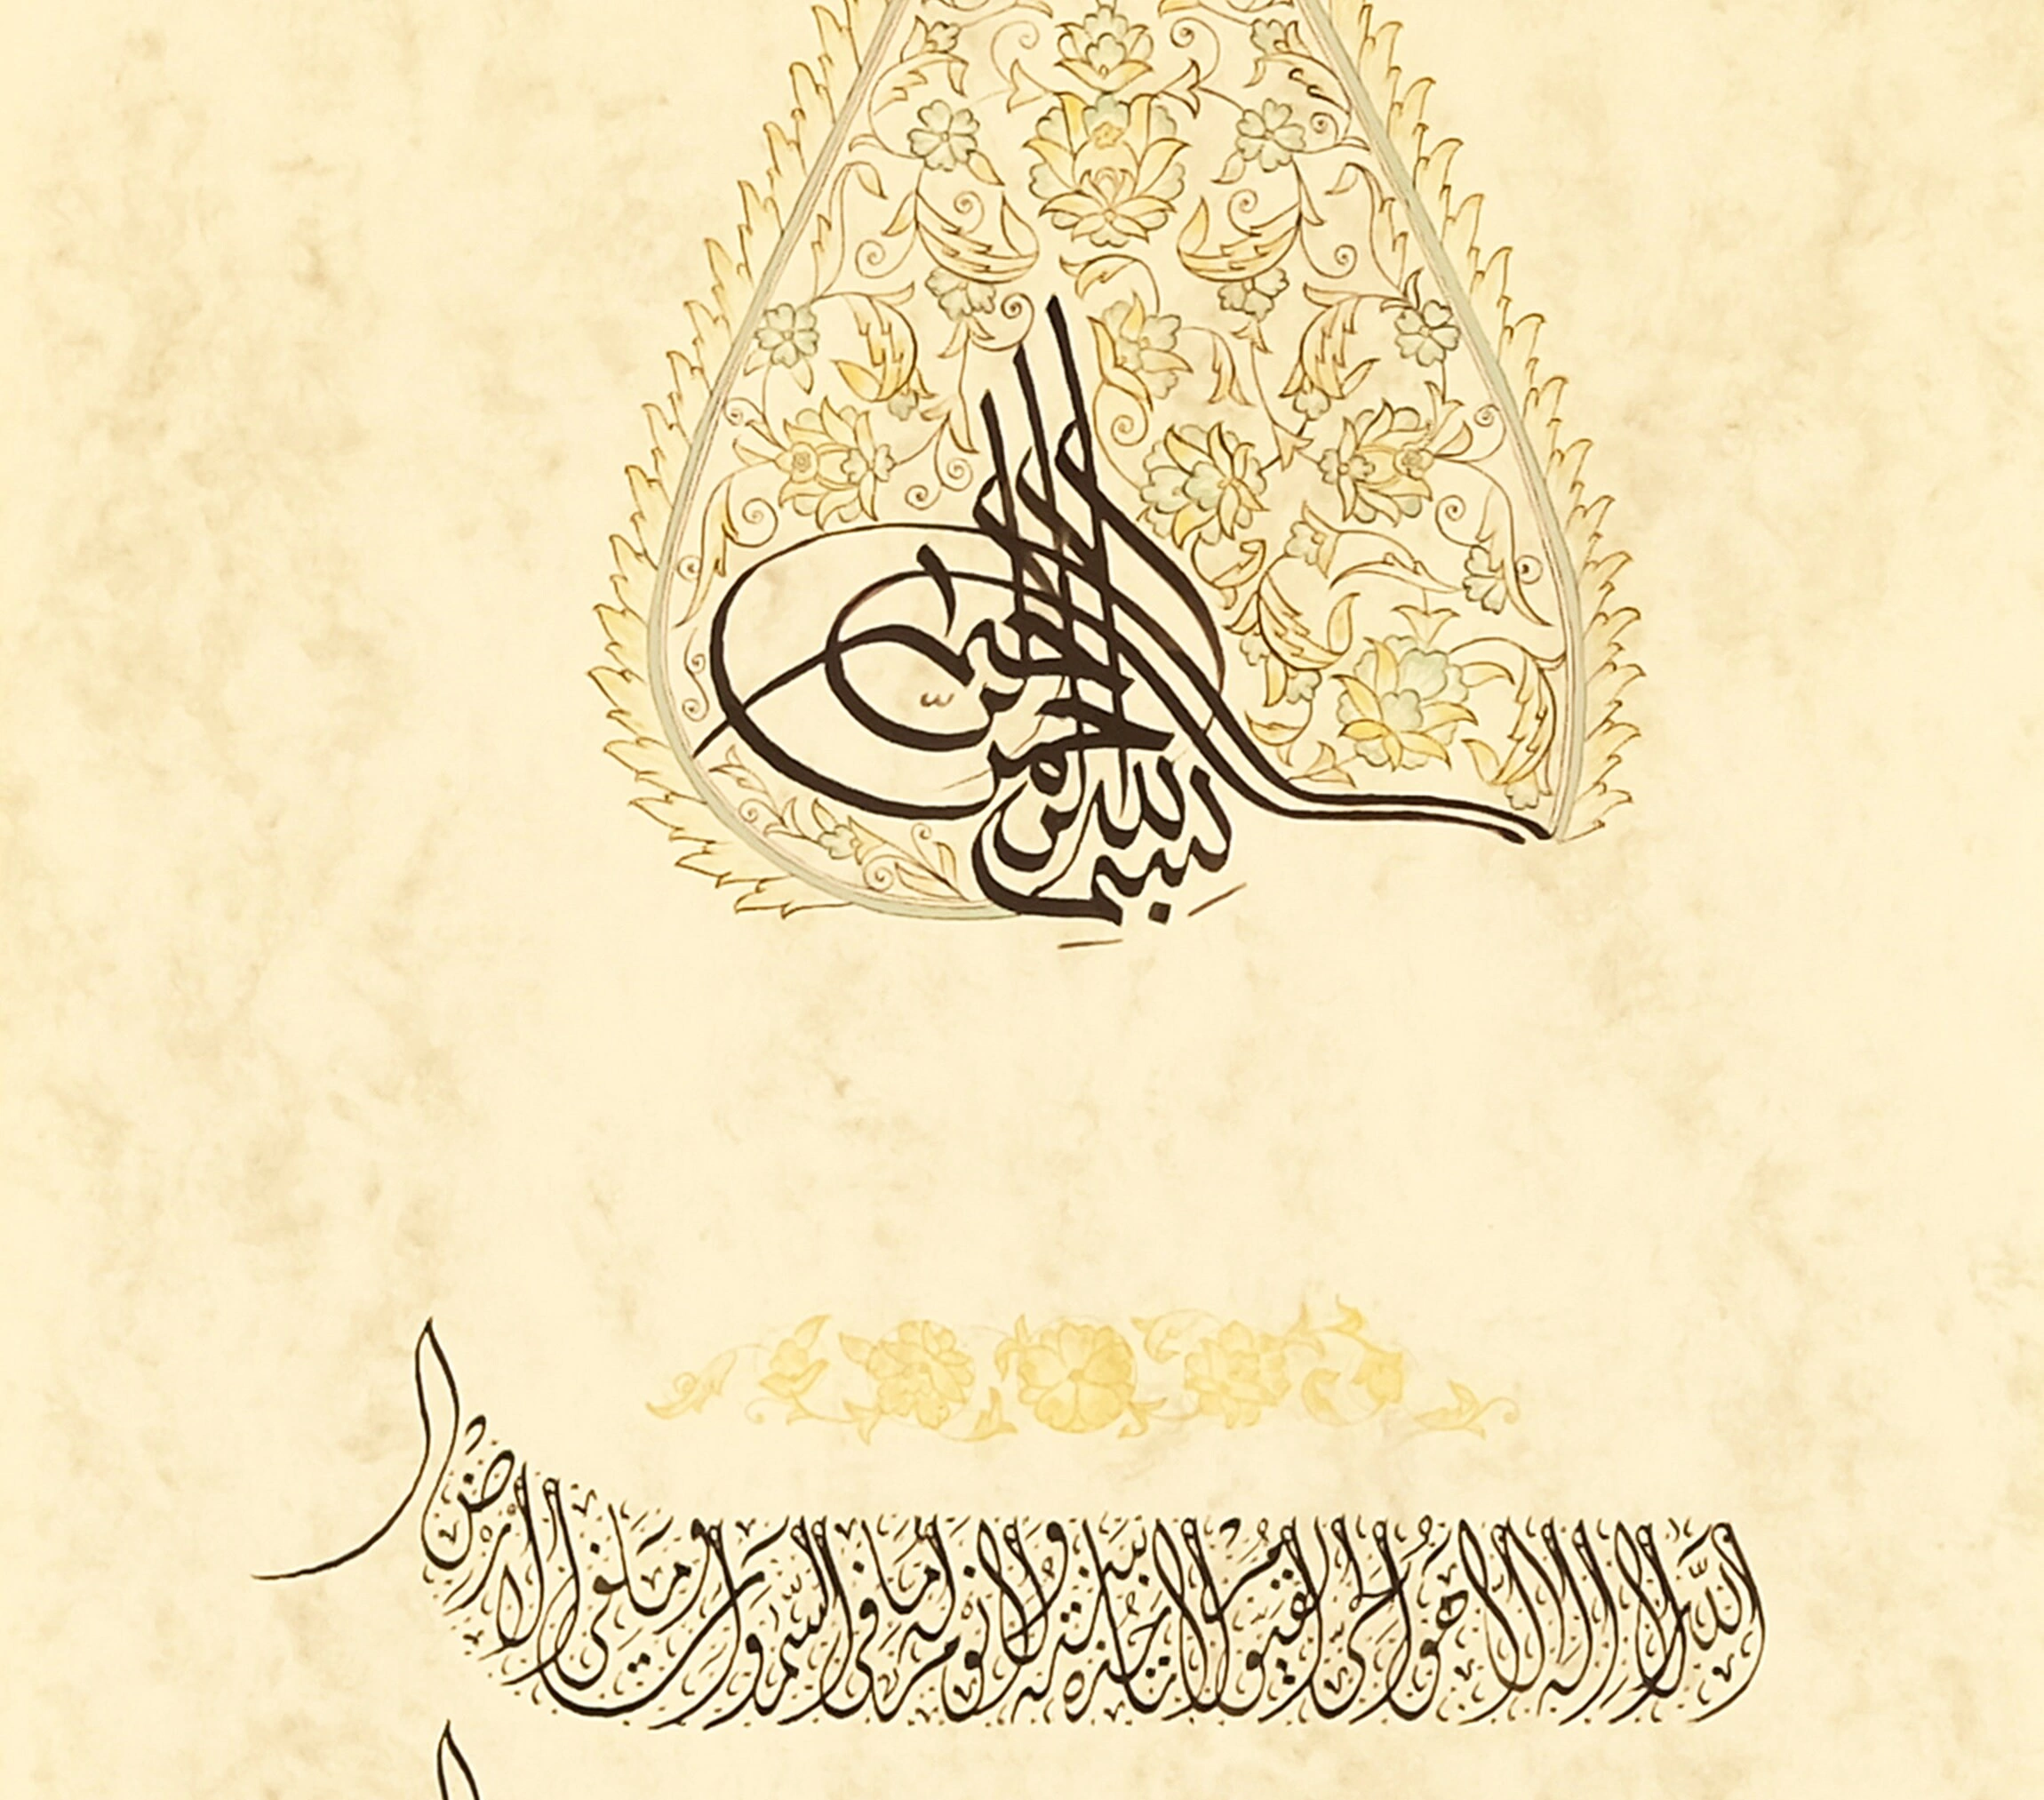 بسم الله الرحمن الرحيم
الله لا اله الا هو الحي القيوم لا تاخذه سنة ولا نوم له ما في السموات وما في الارض